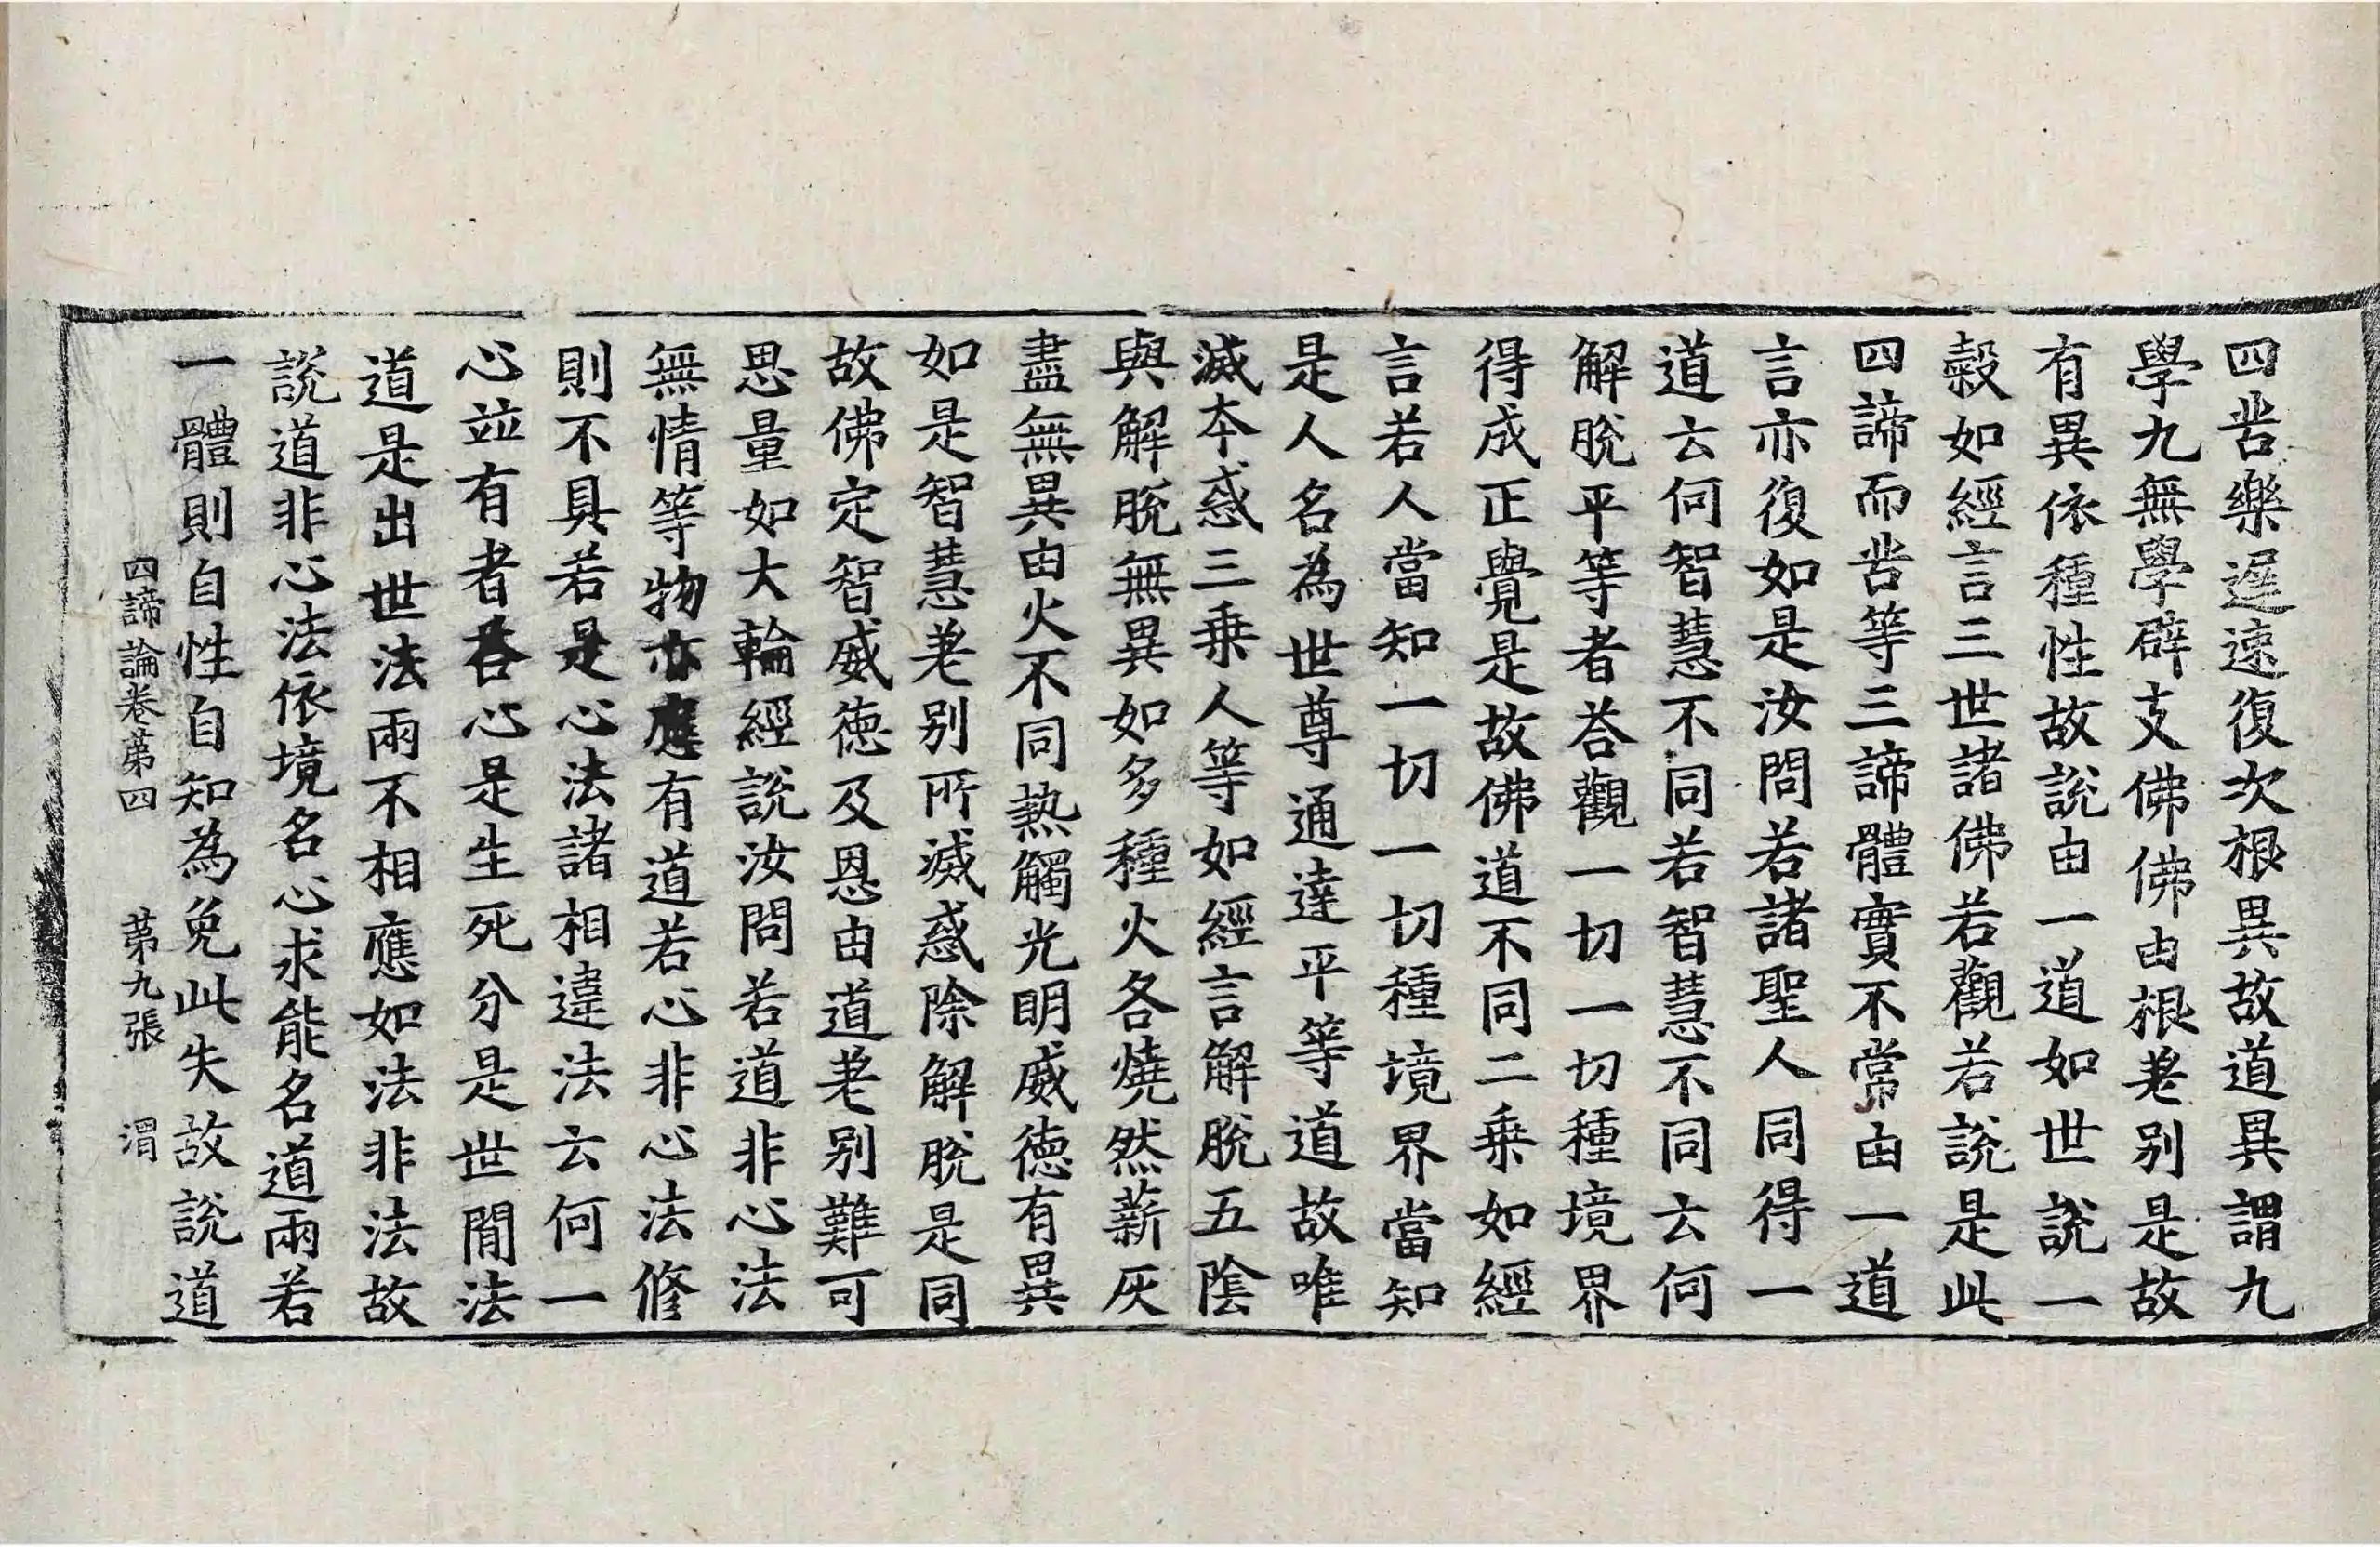 四苦樂遲速復次根異故道異謂九
學九無學辟支佛佛由根差別是故
有異依種性故說由一道如世說一
穀如經言三世諸佛若觀若說是此
四諦而苦等三諦體實不常由一道
言亦復如是汝問若諸聖人同得一
道云何智慧不同若智慧不同云何
解脫平等者荅觀一切一切種境界
得成正覺是故佛道不同二乗如經
言若人當知一切一切種境界當知
是人名為世尊通達平等道故唯
滅本惑三乗人等如經言解脫五陰
與解脫無異如多種火各燒然薪灰
盡無異由火不同熱觸光明威德有異
如是智慧差別所滅惑除解脫是同
故佛定智威德及恩由道差別難可
思量如大輪經說汝問若道非心法
無情等物亦應有道若心非心法修
則不具若是心法諸相違法云何一
心並有者荅心是生死分是世間法
道是出世法兩不相應如法非法故
說道非心法依境名心求能名道兩若
一體則自性自知為免此失故說道
四諦論卷苐四　苐九張　渭